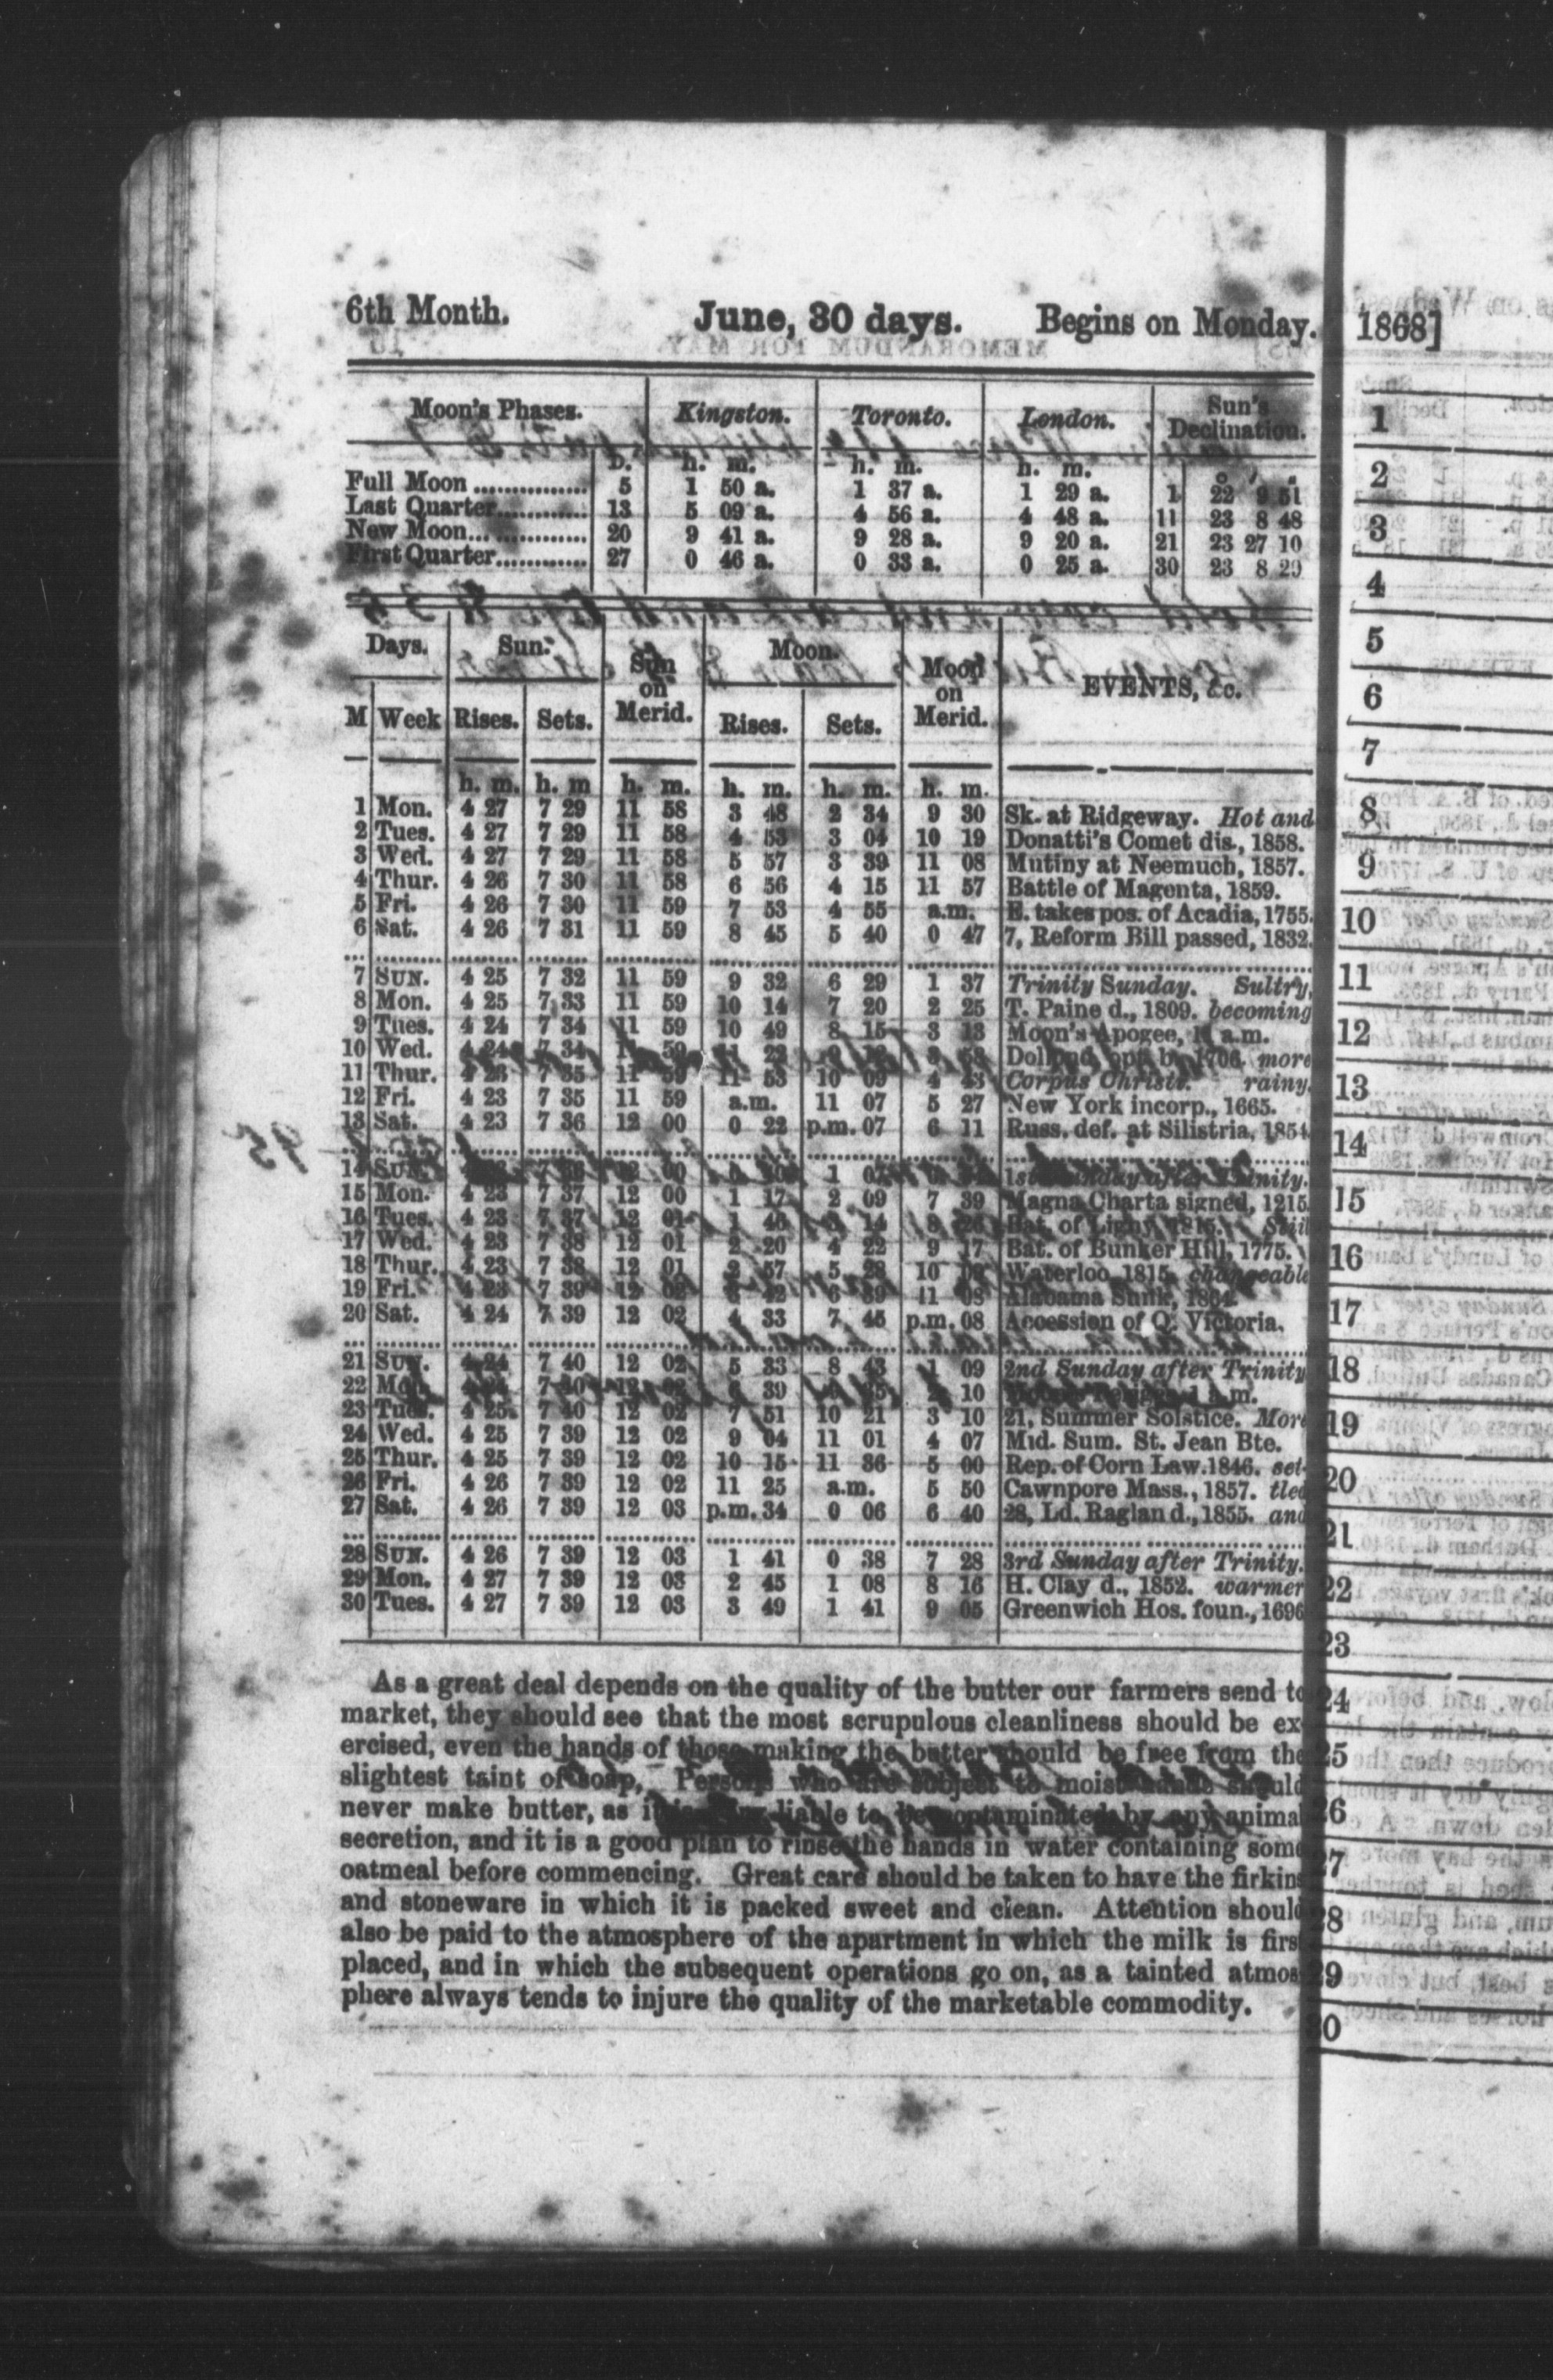 6th Month. June, 30 days. Begins on Monday.
Moon's Phases. Kingston. Toronto. London. Sun's Declination.
D. h. m. h. m. h. m. ° ' "
Full Moon ............... 5 1 50 a. 1 37 a. 1 29 a. 1 22 9 51
Last Quarter............ 13 5 09 a. 4 56 a. 4 48 a. 11 23 8 48
New Moon............... 20 9 41 a. 9 28 a. 9 20 a. 21 23 27 10
First Quarter............ 27 0 46 a. 0 33 a. 0 25 a. 30 23 8 29
Days. Sun. Sun on Merid. Moon. Moon on Merid. EVENTS, &c.
M Week Rises. Sets. Rises. Sets.
h. m. h. m h. m. h. m. h. m. h. m.
1 Mon. 4 27 7 29 11 58 3 48 2 34 9 30 Sk. at Ridgeway. Hot and
2 Tues. 4 27 7 29 11 58 4 53 3 04 10 19 Donatti's Comet dis., 1858.
3 Wed. 4 27 7 29 11 58 5 57 3 39 11 08 Mutiny at Neemuch, 1857.
4 Thur. 4 26 7 30 11 58 6 56 4 15 11 57 Battle of Magenta, 1859.
5 Fri. 4 26 7 30 11 59 7 53 4 55 a.m. E. takes pos. of Acadia, 1755.
6 Sat. 4 26 7 31 11 59 8 45 5 40 0 47 7, Reform Bill passed, 1832.
7 SUN. 4 25 7 32 11 59 9 32 6 29 1 37 Trinity Sunday. Sultry,
8 Mon. 4 25 7 33 11 59 10 14 7 20 2 25 T. Paine d., 1809. becoming
9 Tues. 4 24 7 34 11 59 10 49 8 15 3 13 Moon's Apogee, 11 a.m.
10 Wed. 4 24 7 34 11 59 11 22 3 58 1706. more
11 Thur. 4 23 7 35 11 59 11 53 10 09 4 43 Corpus Christi. rainy.
12 Fri. 4 23 7 35 11 59 a.m. 11 07 5 27 New York incorp., 1665.
13 Sat. 4 23 7 36 12 00 0 22 p.m. 07 6 11 Russ. def. at Silistria, 1854.
14 SUN. 12 00 1 07 1st Sunday after Trinity.
15 Mon. 4 23 7 37 12 00 1 17 2 09 7 39 Magna Charta signed, 1215.
16 Tues. 4 23 7 37 12 01 1 46 3 14 8 26 Bat. of Ligny, 1815. Still
17 Wed. 4 23 7 38 12 01 2 20 4 22 9 17 Bat. of Bunker Hill, 1775.
18 Thur. 4 23 7 38 12 01 2 57 5 28 10 Waterloo, 1815. changeable
19 Fri. 4 23 7 39 12 02 3 42 6 39 11 08 Alabama Sunk, 1864.
20 Sat. 4 24 7 39 12 02 4 33 7 45 p.m. 08 Accession of Q. Victoria.
21 SUN. 4 24 7 40 12 02 5 33 8 43 1 09 2nd Sunday after Trinity
22 Mon. 7 40 12 02 6 39 2 10 a.m.
23 Tues. 4 25 7 40 12 02 7 51 10 21 3 10 21, Summer Solstice. More
24 Wed. 4 25 7 39 12 02 9 04 11 01 4 07 Mid. Sum. St. Jean Bte.
25 Thur. 4 25 7 39 12 02 10 15 11 36 5 00 Rep. of Corn Law. 1846. set-
26 Fri. 4 26 7 39 12 02 11 25 a.m. 5 50 Cawnpore Mass., 1857. tled
27 Sat. 4 26 7 39 12 03 p.m. 34 0 06 6 40 28, Ld. Raglan d., 1855. and
28 SUN. 4 26 7 39 12 03 1 41 0 38 7 28 3rd Sunday after Trinity.
29 Mon. 4 27 7 39 12 03 2 45 1 08 8 16 H. Clay d., 1852. warmer
30 Tues. 4 27 7 39 12 03 3 49 1 41 9 05 Greenwich Hos. foun., 1696
As a great deal depends on the quality of the butter our farmers send to
market, they should see that the most scrupulous cleanliness should be ex-
ercised, even the hands of those making the butter should be free from the
slightest taint of soap, Persons who are subject to moist hands should
never make butter, as it is liable to be contaminated by any animal
secretion, and it is a good plan to rinse the hands in water containing some
oatmeal before commencing. Great care should be taken to have the firkins
and stoneware in which it is packed sweet and clean. Attention should
also be paid to the atmosphere of the apartment in which the milk is firs
placed, and in which the subsequent operations go on, as a tainted atmos
phere always tends to injure the quality of the marketable commodity.
1868]
1
2
3
4
5
6
7
8
9
10
11
12
13
14
15
16
17
18
19
20
21
22
23
24
25
26
27
28
29
30